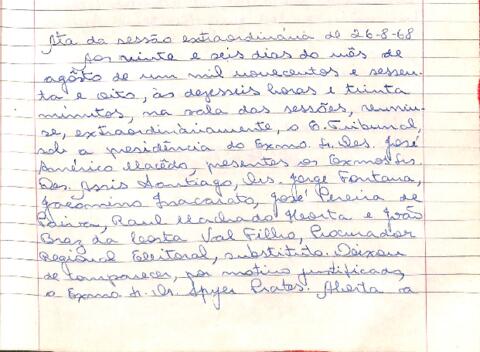 Ata da sessão extraordinária de 26-8-68
Aos vinte e seis dias do mês de
agôsto de um mil novecentos e sessen-
ta e oito, às dezesseis horas e trinta
minutos, na sala das sessões, reuniu-
se, extraordinàriamente, o E. Tribunal,
sob a presidência do Exmo. Sr. Des. José
Américo Macêdo, presentes os Exmos. Srs.
Des. Assis Santiago, Drs. Jorge Fontana,
Jacomino Inacarato, José Pereira de
Paiva, Raul Machado Horta e João
Braz da Costa Val Filho, Procurador
Regional Eleitoral, substituto. Deixou
de comparecer, por motivo justificado,
o Exmo. Sr. Dr. Apyer Prates. Aberta a